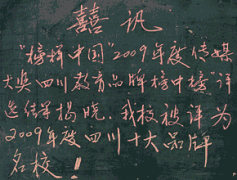 囍讯
"榜样中国"2009年度传媒
大奖四川教育品牌榜中榜"评
选结果揭晓，我校被评为
2009年度四川十大品牌
名校！